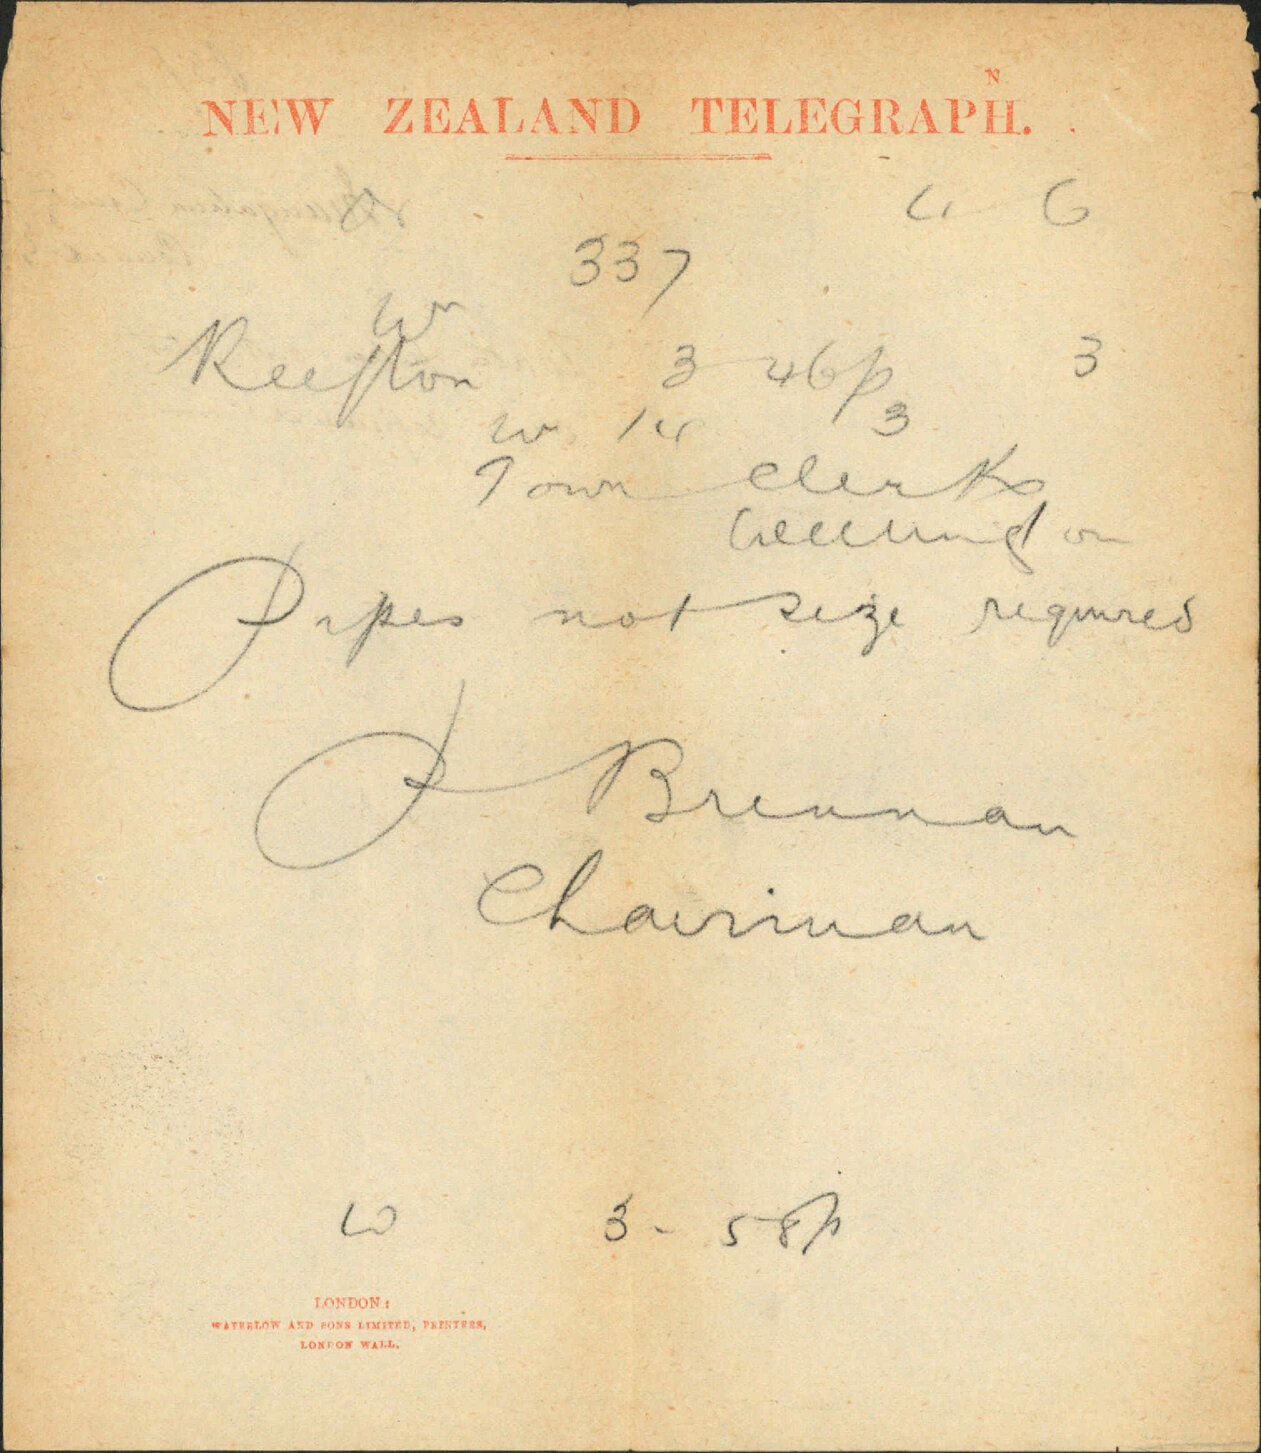 N
NEW ZEALAND TELEGRAPH.
6
337
Wn
Reefton 3 46p 3
14 3
Town Clerk
Wellington
Pipes not size required
P Brennan
Chairman
W 3 - 58p
LONDON:
WATERLOW AND SONS LIMITED, PRINTERS,
LONDON WALL.